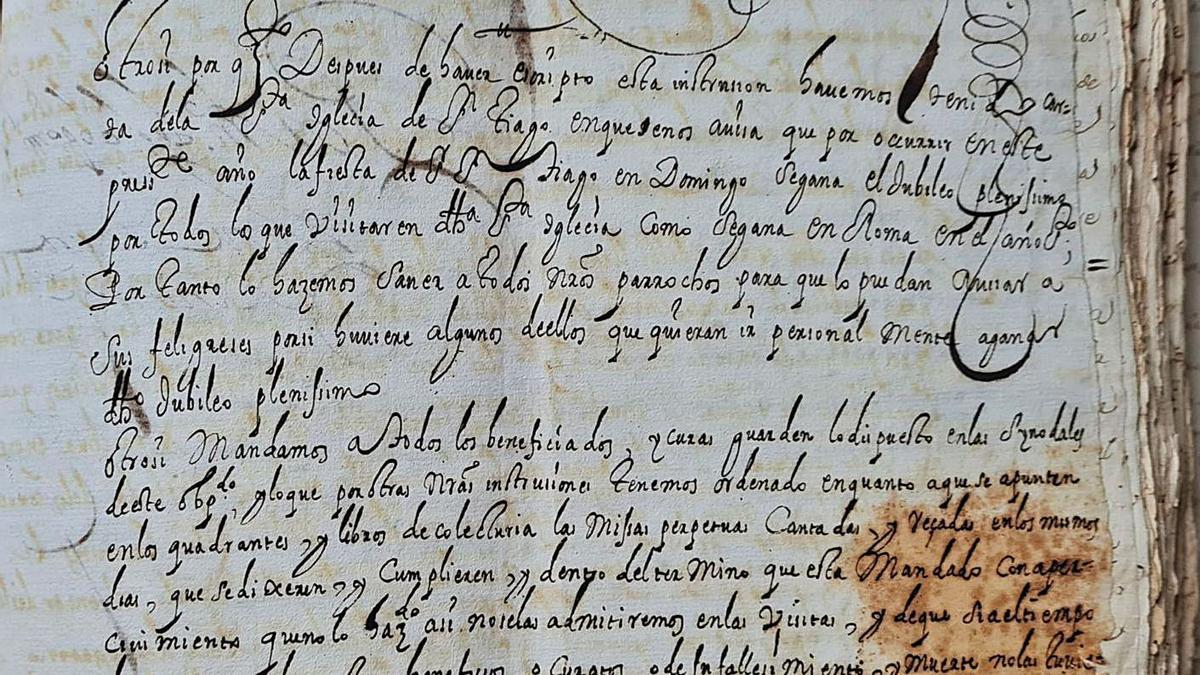 Otrosi por q̃ Despues de haver escripto esta instrucion havemos tenido car-
ta dela Sta Iglecia de Sn Tiago enquesenos avisa que por occurrir en este
presste año lafiesta de Sr Sn Tiago en Domingo Segana el Jubileo plenissimo
por todos los que Visitaren dha Sta Iglecia Como Segana en Roma en el año Sto
Por tanto lo hazemos Saver a todos nr̃os parrochos para que lo puedan Avisar a
Sus feligreses porsi huviere algunos deellos que quieran ir personal Mente aganar
dho Jubileo plenissimo
otrosi Mandamos a todos los beneficiados, y curas guarden lo dispuesto enlas Synodales
deeste obpdo, yloque por otras Nr̃as instrusiones tenemos ordenado enquanto aque se apunten
enlos quadrantes, y libros de colecturia las Missas perpetuas Cantadas, y reçadas enlos mismos
dias, que sedixeren, y Cumplieren, y dentro del ter Mino que esta Mandado Conaper-
civimiento quenolo hazdo asi noselas admitiremos enlas Visitas, y deque siaeltiempo
o Curatos, o de Su fallesimiento, y Muerte nolas